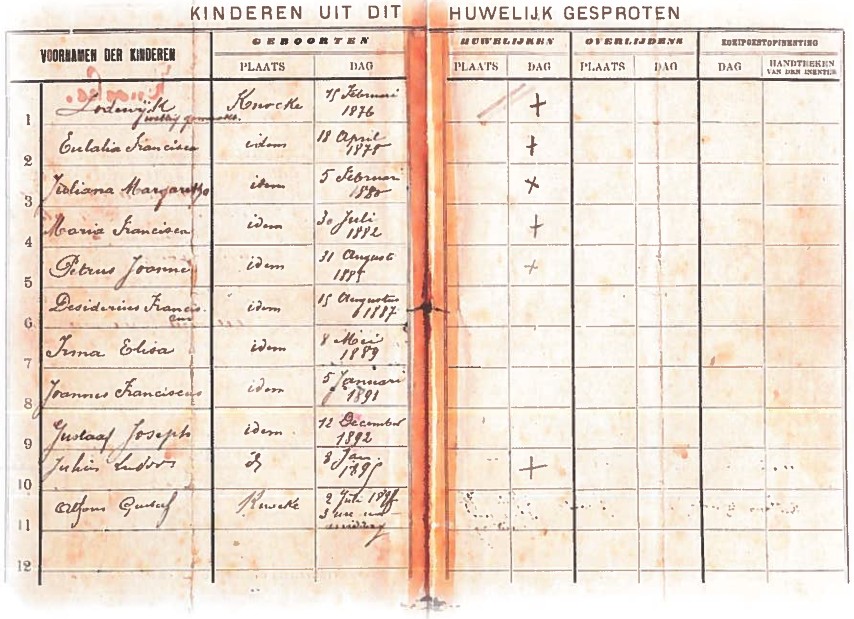 KINDEREN UIT DIT HUWELIJK GESPROTEN
VOORNAMEN DER KINDEREN GEBOORTEN HUWELIJKEN OVERLIJDENS KOEIPOKSTOFINENTING
PLAATS DAG PLAATS DAG PLAATS DAG DAG HANDTREKEN
VAN DEN INENTER
1 Lodewijk Knocke 15 Februari
1876
2 Eulalia Francisca idem 18 April
1878
3 Juliana Margaretha idem 5 Februari
1880
4 Maria Francisca idem 30 Juli
1882
5 Petrus Joannes idem 31 August
1885
6 Desiderius Francis idem 15 Augustus
1887
7 Irma Elisa idem 8 Mei
1889
8 Joannes Franciscus idem 5 Januari
1891
9 Gustaaf Joseph idem 12 December
1892
10 Julius 3 Jan.
1895
11 Alfons Gustaf Knocke 2 Juli
3 ure
middag
12